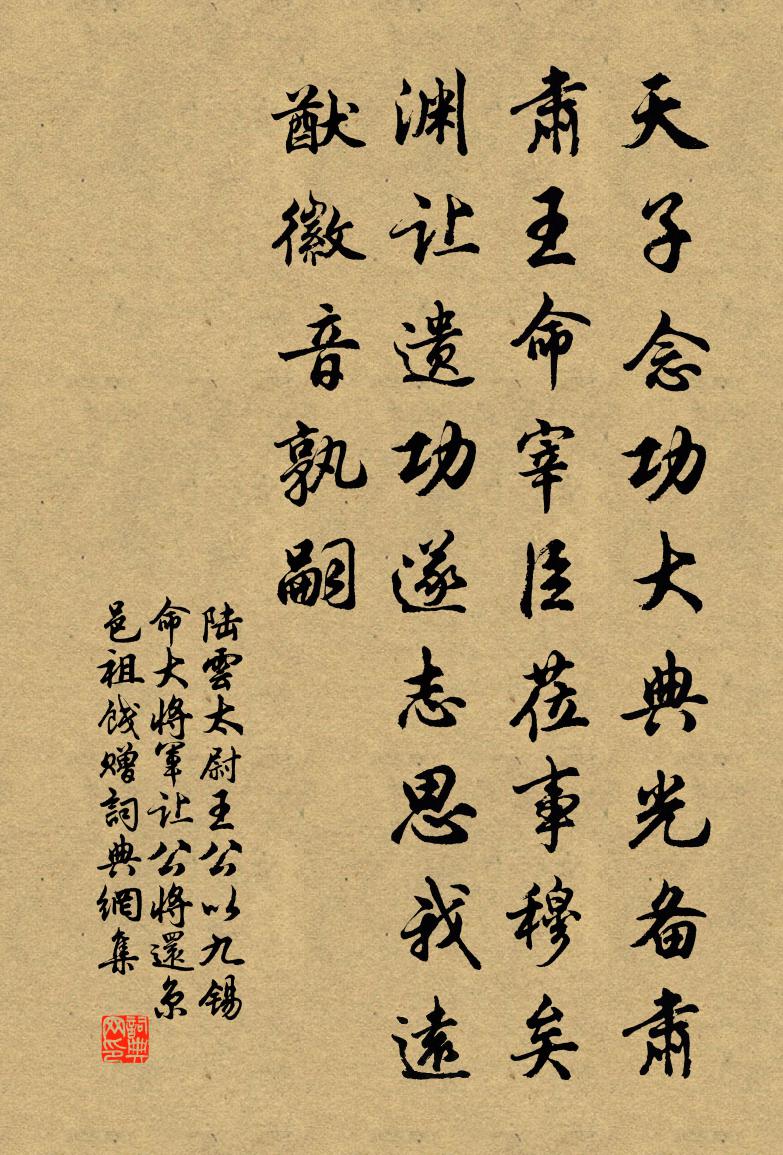 天子念功大典光备肃
肃王命宰臣莅事穆矣
渊让遗功遂志思我远
猷徽音孰嗣
陆雲太尉王公以九锡
命大将军让公将還京
邑祖餞赠詞典網集
詞典
网印